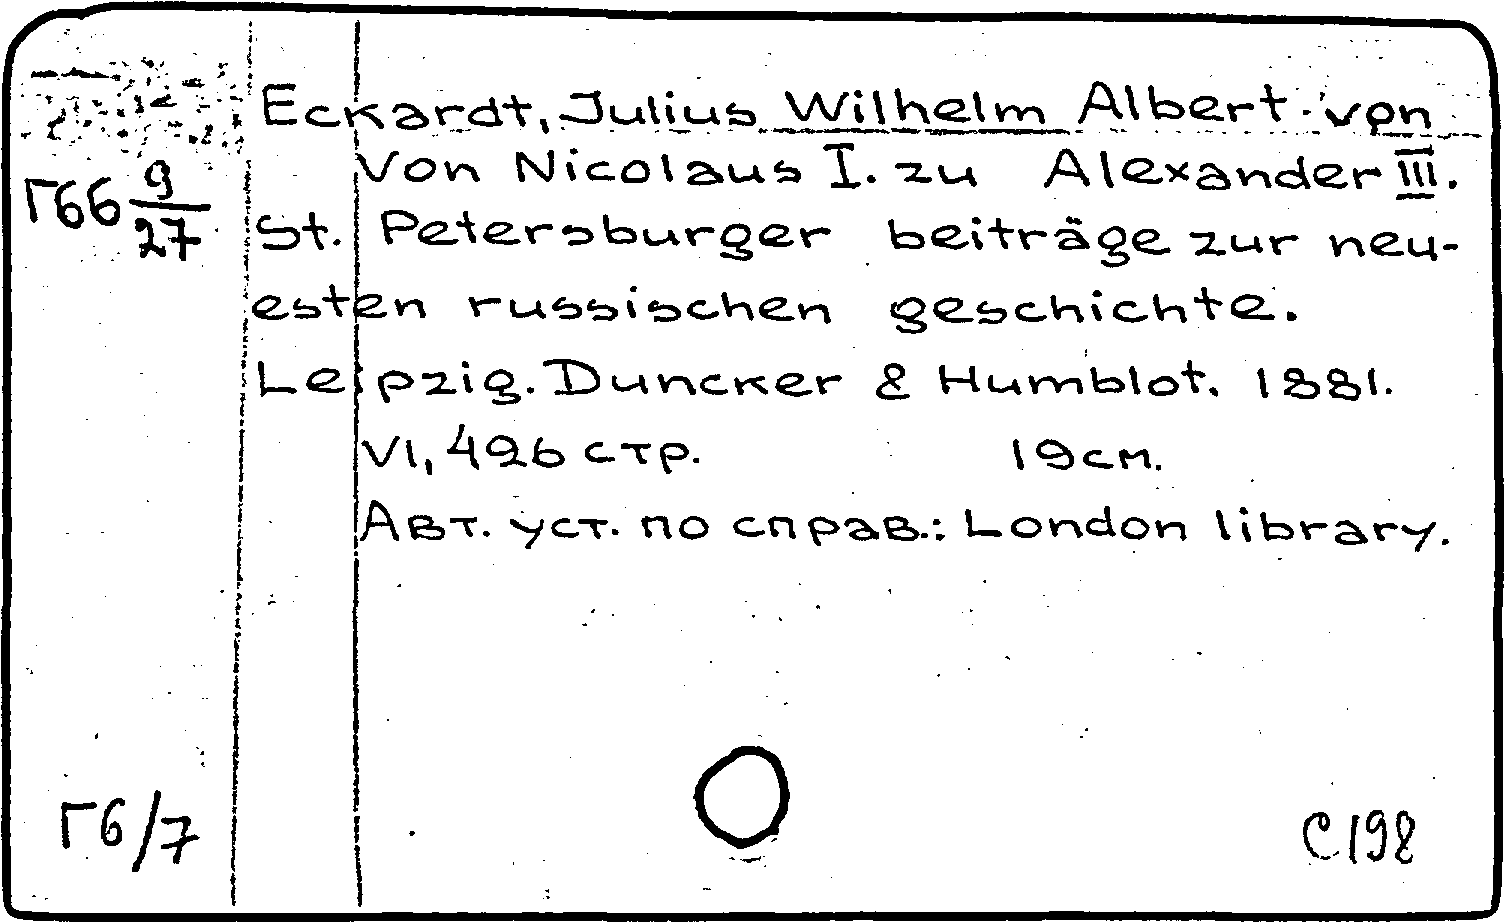 Eckardt, Julius Wilhelm Albert von
Von Nicolaus I. zu Alexander III.
Г66 9/27
St. Petersburger beiträge zur neu-
esten russischen geschichte.
Leipzig. Duncker & Humblot. 1881.
VI, 426 стр. 19 см.
Авт. уст. по справ.: London library.
Г6/7
С198